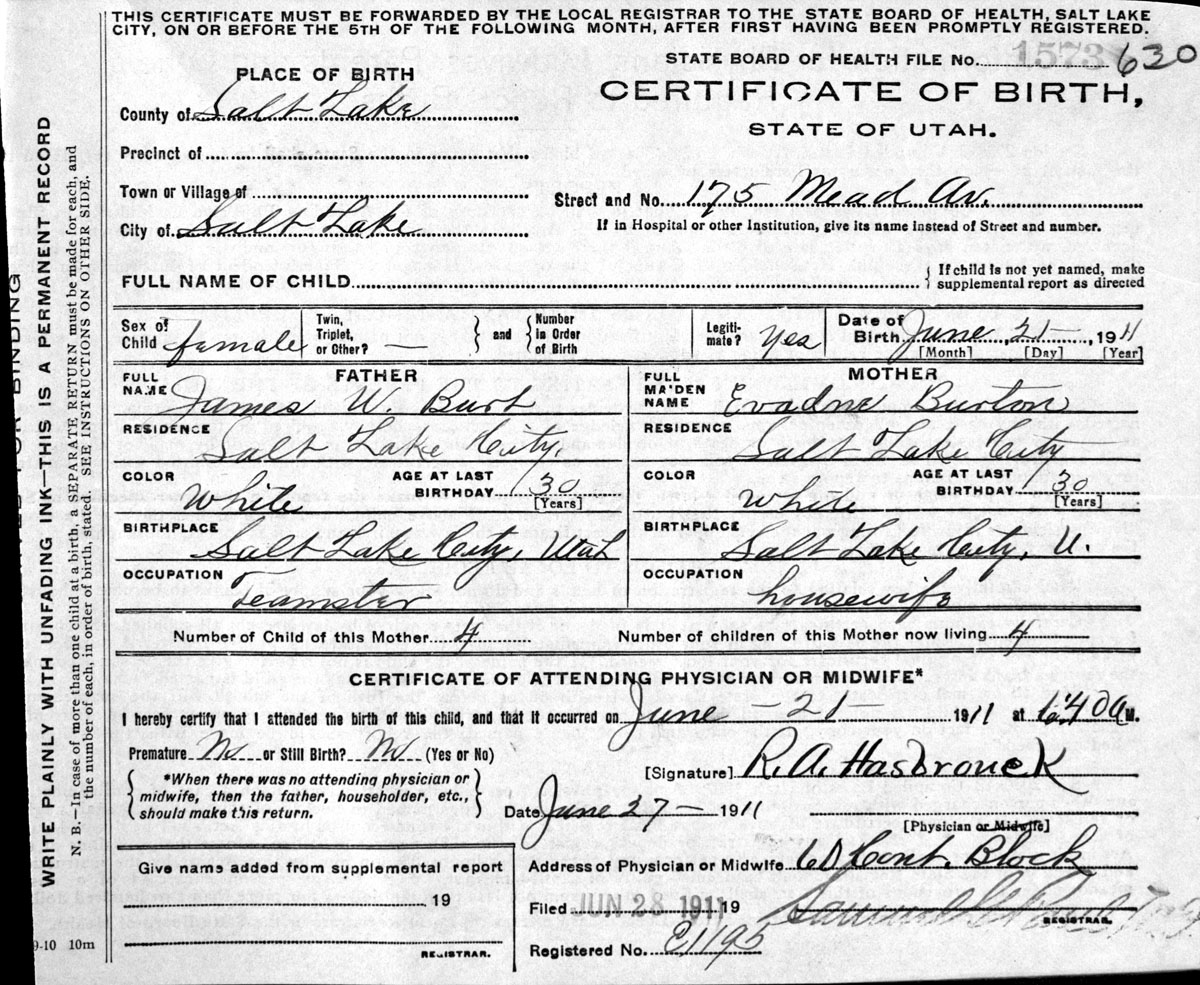 THIS CERTIFICATE MUST BE FORWARDED BY THE LOCAL REGISTRAR TO THE STATE BOARD OF HEALTH, SALT LAKE
CITY, ON OR BEFORE THE 5TH OF THE FOLLOWING MONTH, AFTER FIRST HAVING BEEN PROMPTLY REGISTERED.
STATE BOARD OF HEALTH FILE No. 1573 620
PLACE OF BIRTH
CERTIFICATE OF BIRTH,
STATE OF UTAH.
County of Salt Lake
Precinct of
Town or Village of
Street and No. 175 Mead Av.
City of Salt Lake
If in Hospital or other Institution, give its name instead of Street and number.
FULL NAME OF CHILD
If child is not yet named, make
supplemental report as directed
Sex of Child female
Twin, Triplet, or Other? —
and
Number in Order of Birth
Legiti-mate? Yes
Date of Birth June 21 —, 1911
[Month] [Day] [Year]
FATHER
FULL NAME James W. Burt
RESIDENCE Salt Lake City,
COLOR White
AGE AT LAST BIRTHDAY 30 [Years]
BIRTHPLACE Salt Lake City, Utah
OCCUPATION Teamster
MOTHER
FULL MAIDEN NAME Evadne Burton
RESIDENCE Salt Lake City
COLOR White
AGE AT LAST BIRTHDAY 30 [Years]
BIRTHPLACE Salt Lake City, U.
OCCUPATION housewife
Number of Child of this Mother 4
Number of children of this Mother now living 4
CERTIFICATE OF ATTENDING PHYSICIAN OR MIDWIFE*
I hereby certify that I attended the birth of this child, and that it occurred on June — 21 — 1911 at 6:40 a M.
Premature No or Still Birth? No (Yes or No)
*When there was no attending physician or
midwife, then the father, householder, etc.,
should make this return.
[Signature] R. A. Hasbrouck
Date June 27 — 1911
[Physician or Midwife]
Give name added from supplemental report
19
REGISTRAR.
Address of Physician or Midwife 60 Cont. Block
Filed JUN 28 1911 19
REGISTRAR.
Registered No. C1195
FOR BINDING
WRITE PLAINLY WITH UNFADING INK—THIS IS A PERMANENT RECORD
N. B.—In case of more than one child at a birth, a SEPARATE RETURN must be made for each, and
the number of each, in order of birth, stated. SEE INSTRUCTIONS ON OTHER SIDE.
9-10 10m